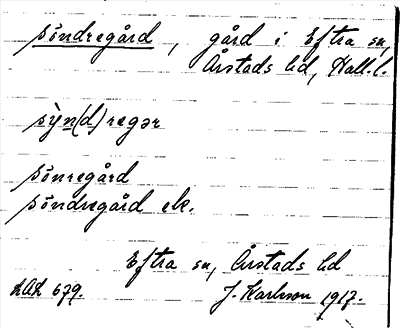 söndregård, gård i Eftra sn,
Årstads hd, Hall.l.
sỳn(d)regər
sönregård
söndregård etc.
Eftra sn, Årstads hd
LAL 679. J. Karlsson 1917.